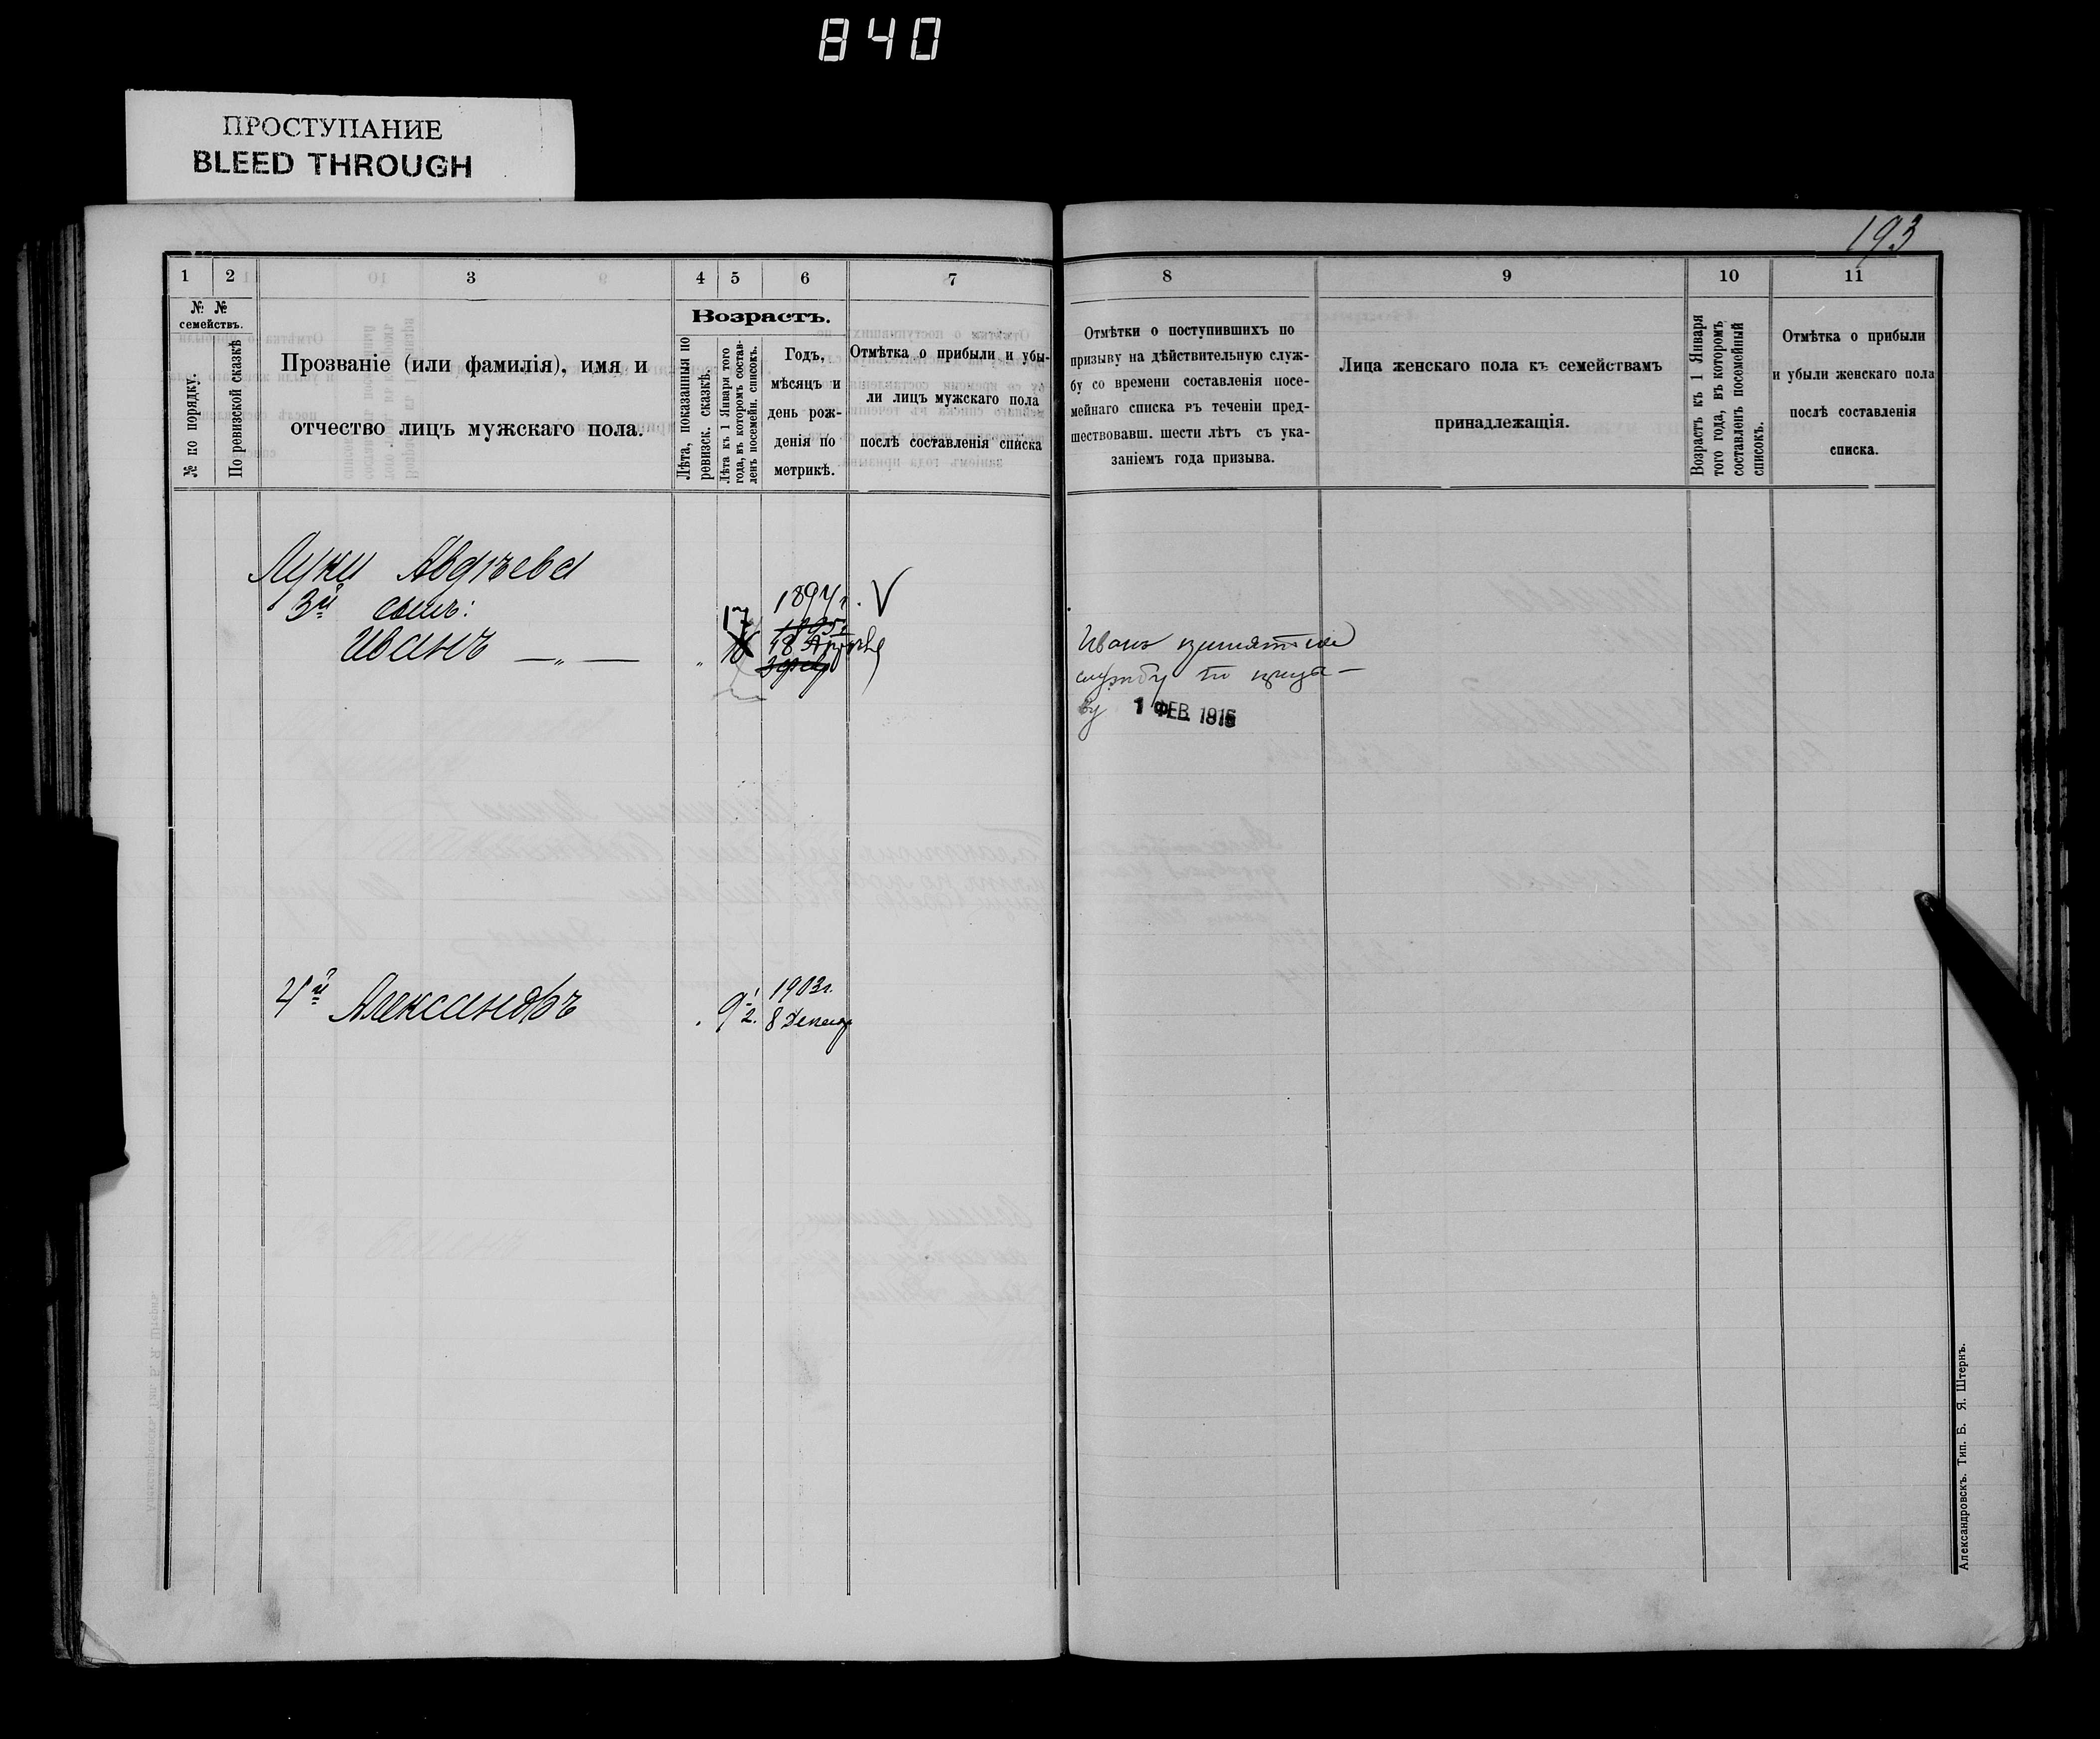 840
ПРОСТУПАНИЕ
BLEED THROUGH
193
1 2 3 4 5 6 7
8 9 10 11
№ № семействъ.
№ по порядку.
По ревизской сказкѣ
Прозваніе (или фамилія), имя и
отчество лицъ мужскаго пола.
Возрастъ.
Лѣта, показанныя по
ревизск. сказкѣ.
Лѣта къ 1 Января того
года, въ которомъ состав-
ленъ посемейн. списокъ.
Годъ,
мѣсяцъ и
день рож-
денія по
метрикѣ.
Отмѣтка о прибыли и убы-
ли лицъ мужскаго пола
послѣ составленія списка
Отмѣтки о поступившихъ по
призыву на дѣйствительную служ-
бу со времени составленія посе-
мейнаго списка въ теченіи пред-
шествовавш. шести лѣтъ съ ука-
заніемъ года призыва.
Лица женскаго пола къ семействамъ
принадлежащія.
Возрастъ къ 1 Января
того года, въ которомъ
составленъ посемейный
списокъ.
Отмѣтка о прибыли
и убыли женскаго пола
послѣ составленія
списка.
Луки Авдѣева
3й сынъ:
1897г. V
17
1895г
Иванъ — „ —
18
Иванъ принятъ на
службу по призы-
ву 1 ФЕВ. 1916
4й Александръ
9 1/2. 1903г.
8 Декабр
Александровскъ. Тип. Б. Я. Штернъ.